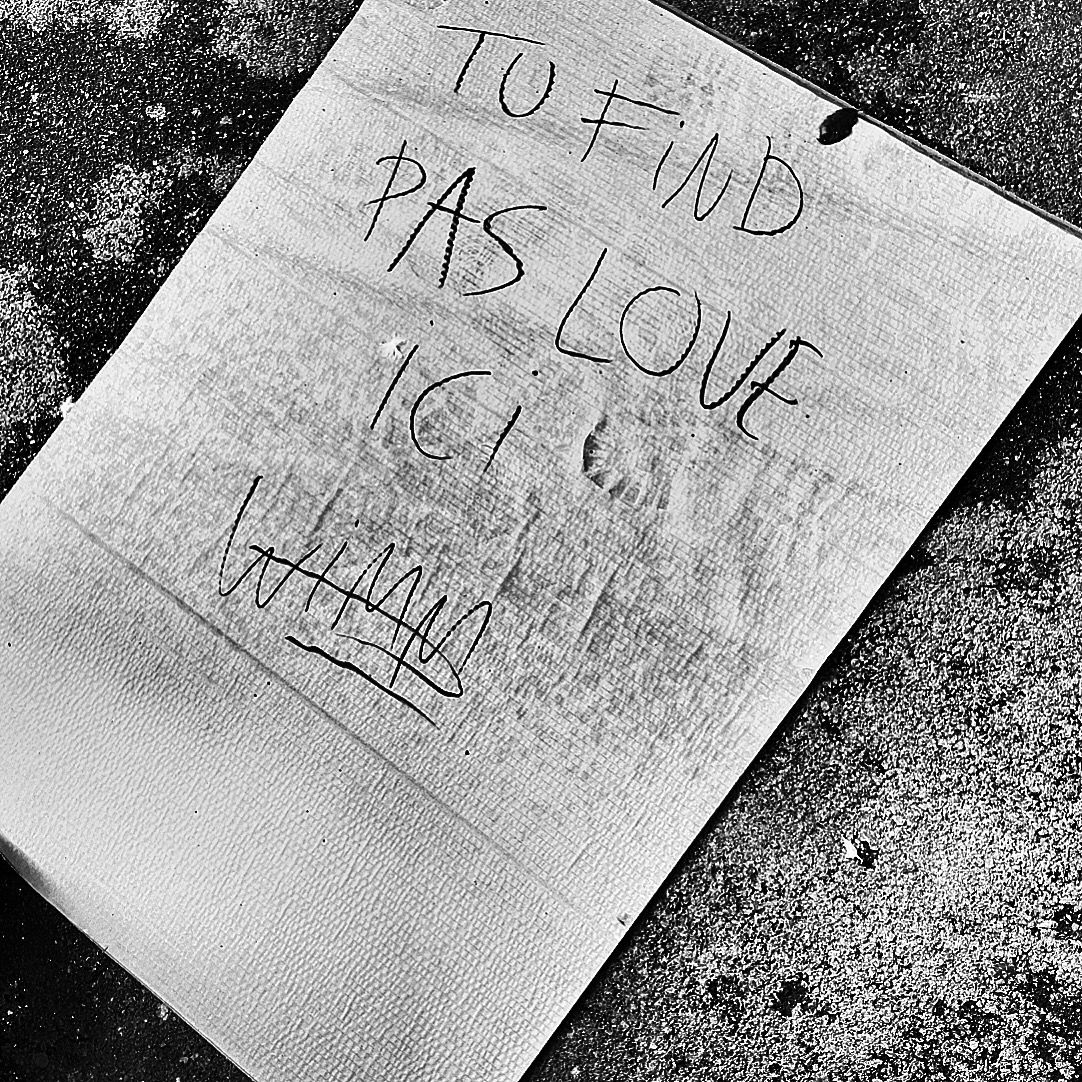 TU FiND
PAS LOVE
ICI